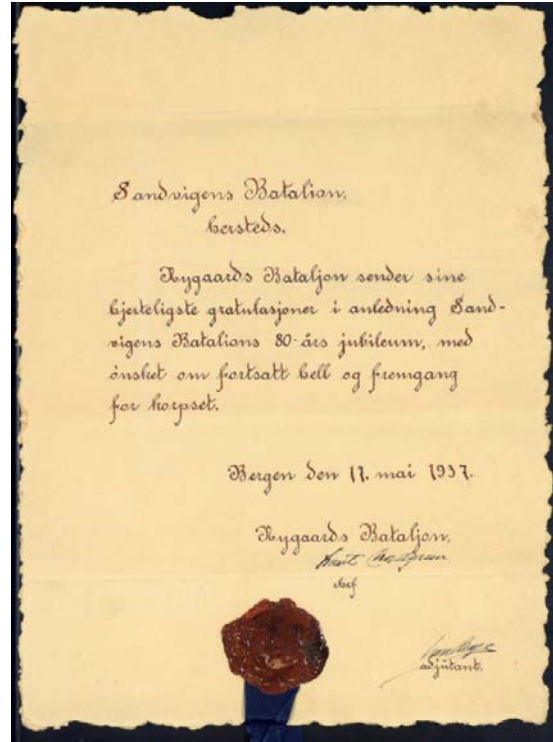 Sandvigens Batalion,
hersteds.
Nygaards Bataljon sender sine
hjerteligste gratulasjoner i anledning Sand-
vigens Batalions 80-års jubileum, med
ønsket om fortsatt hell og fremgang
for korpset.
Bergen den 17. mai 1937.
Nygaards Bataljon,
Knut
adjutant.